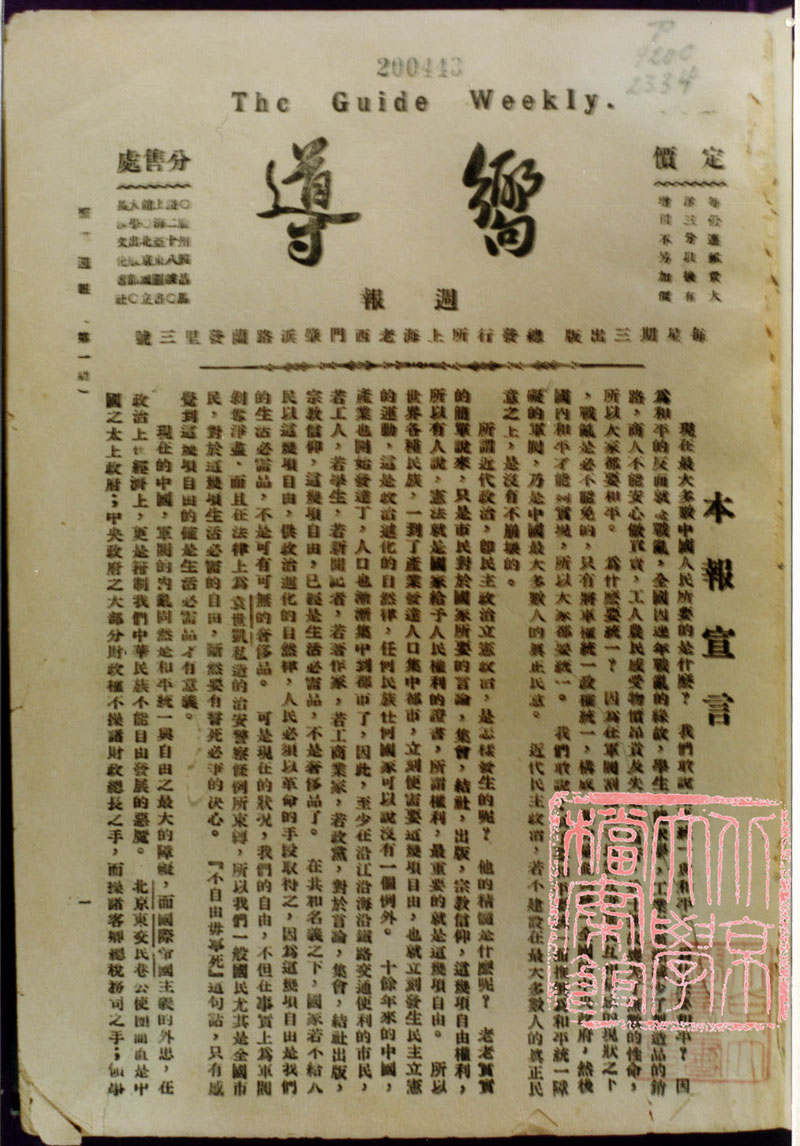 200443
The Guide Weekly.
定價
嚮導
週報
分售處
每星期三出版 總發行所上海老西門肇浜路蘭發里三號
本報宣言
現在最大多數中國人民所要的是什麼？ 我們敢說
為和平的反面就是戰亂，全國因連年戰亂的緣故，學生
路，商人不能安心做買賣，工人農民感受物價昂貴及失
所以大家都要和平。 為什麼要統一？ 因為在軍閥割
，戰亂是必不能免的，只有將軍權統一政權統一，構成
國內和平才能夠實現，所以大家都要統一。 我們敢說
礙的軍閥，乃是中國最大多數人的真正民意。 近代民主政治，若不建設在最大多數人的真正民
意之上，是沒有不崩壞的。
所謂近代政治，即民主政治立憲政治，是怎樣發生的呢？ 他的精髓是什麼呢？ 老老實實
的簡單說來，只是市民對於國家所要的言論，集會，結社，出版，宗教信仰，這幾項自由權利，
所以有人說，憲法就是國家給予人民權利的證書，所謂權利，最重要的就是這幾項自由。 所以
世界各種民族，一到了產業發達人口集中都市，立刻便需要這幾項自由，也就立刻發生民主立憲
的運動，這是政治進化的自然律，任何民族任何國家可以說沒有一個例外。 十餘年來的中國，
產業也開始發達了，人口也漸漸集中到都市了，因此，至少在沿江沿海沿鐵路交通便利的市民，
若工人，若學生，若新聞記者，若著作家，若工商業家，若政黨，對於言論，集會，結社出版，
宗教信仰，這幾項自由，已經是生活必需品，不是奢侈品了。 在共和名義之下，國家若不給人
民以這幾項自由，供政治進化的自然律，人民必須以革命的手段取得之，因為這幾項自由是我們
的生活必需品，不是可有可無的奢侈品。 可是現在的狀況，我們的自由，不但在事實上為軍閥
剝奪淨盡，而且在法律上為袁世凱私造的治安警察條例所束縛，所以我們一般國民尤其是全國市
民，對於這幾項生活必需的自由，斷然要有誓死必爭的決心。 『不自由毋寧死』這句話，只有感
覺到這幾項自由的確是生活必需品才有意義。
現在的中國，軍閥的內亂固然是和平統一與自由之最大的障礙，而國際帝國主義的外患，在
政治上在經濟上，更是箝制我們中華民族不能自由發展的惡魔。 北京東交民巷公使團簡直是中
國之太上政府；中央政府之大部分財政權不操諸財政總長之手，而操諸客卿總稅務司之手；領事
一
北京大學檔案館